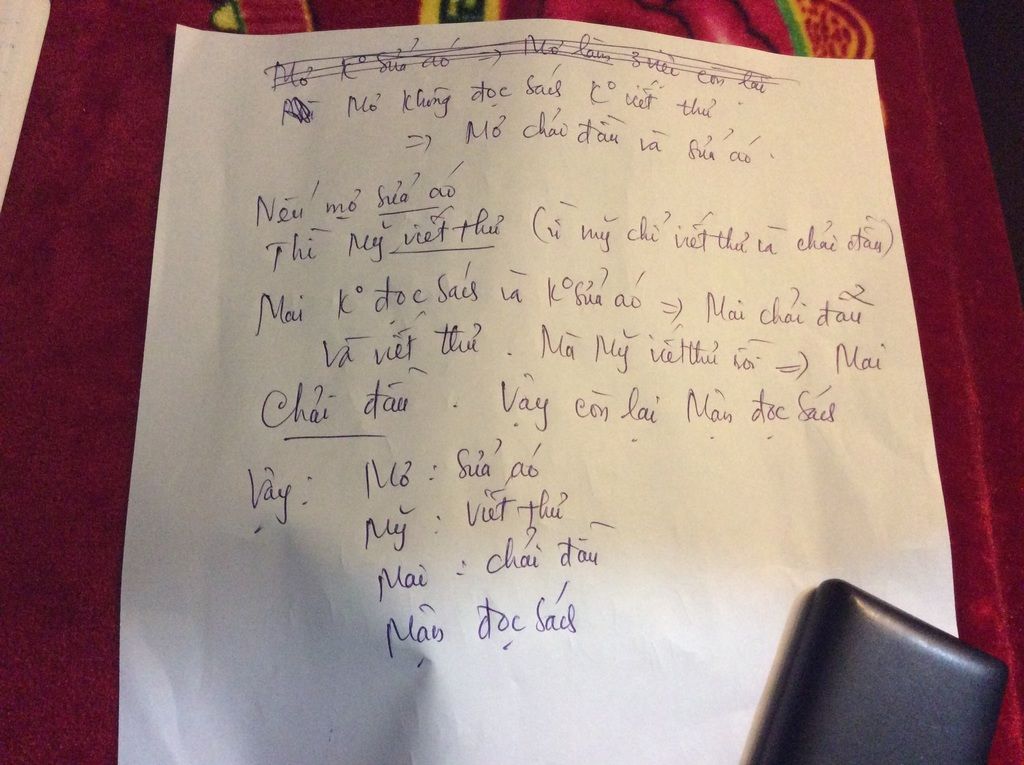 Mơ K° sửa áo => Mơ làm 3 việc còn lại
Mơ không đọc sách K° viết thư
=> Mơ chải đầu và sửa áo.
Nếu mơ sửa áo
Thì Mỹ viết thư (vì mỹ chỉ viết thư và chải đầu)
Mai K° đọc sách và K° sửa áo => Mai chải đầu
và viết thư. Mà Mỹ viết thư rồi => Mai
Chải đầu. Vậy còn lại Mận đọc sách
Vậy: Mơ: sửa áo
Mỹ: viết thư
Mai: chải đầu
Mận đọc sách